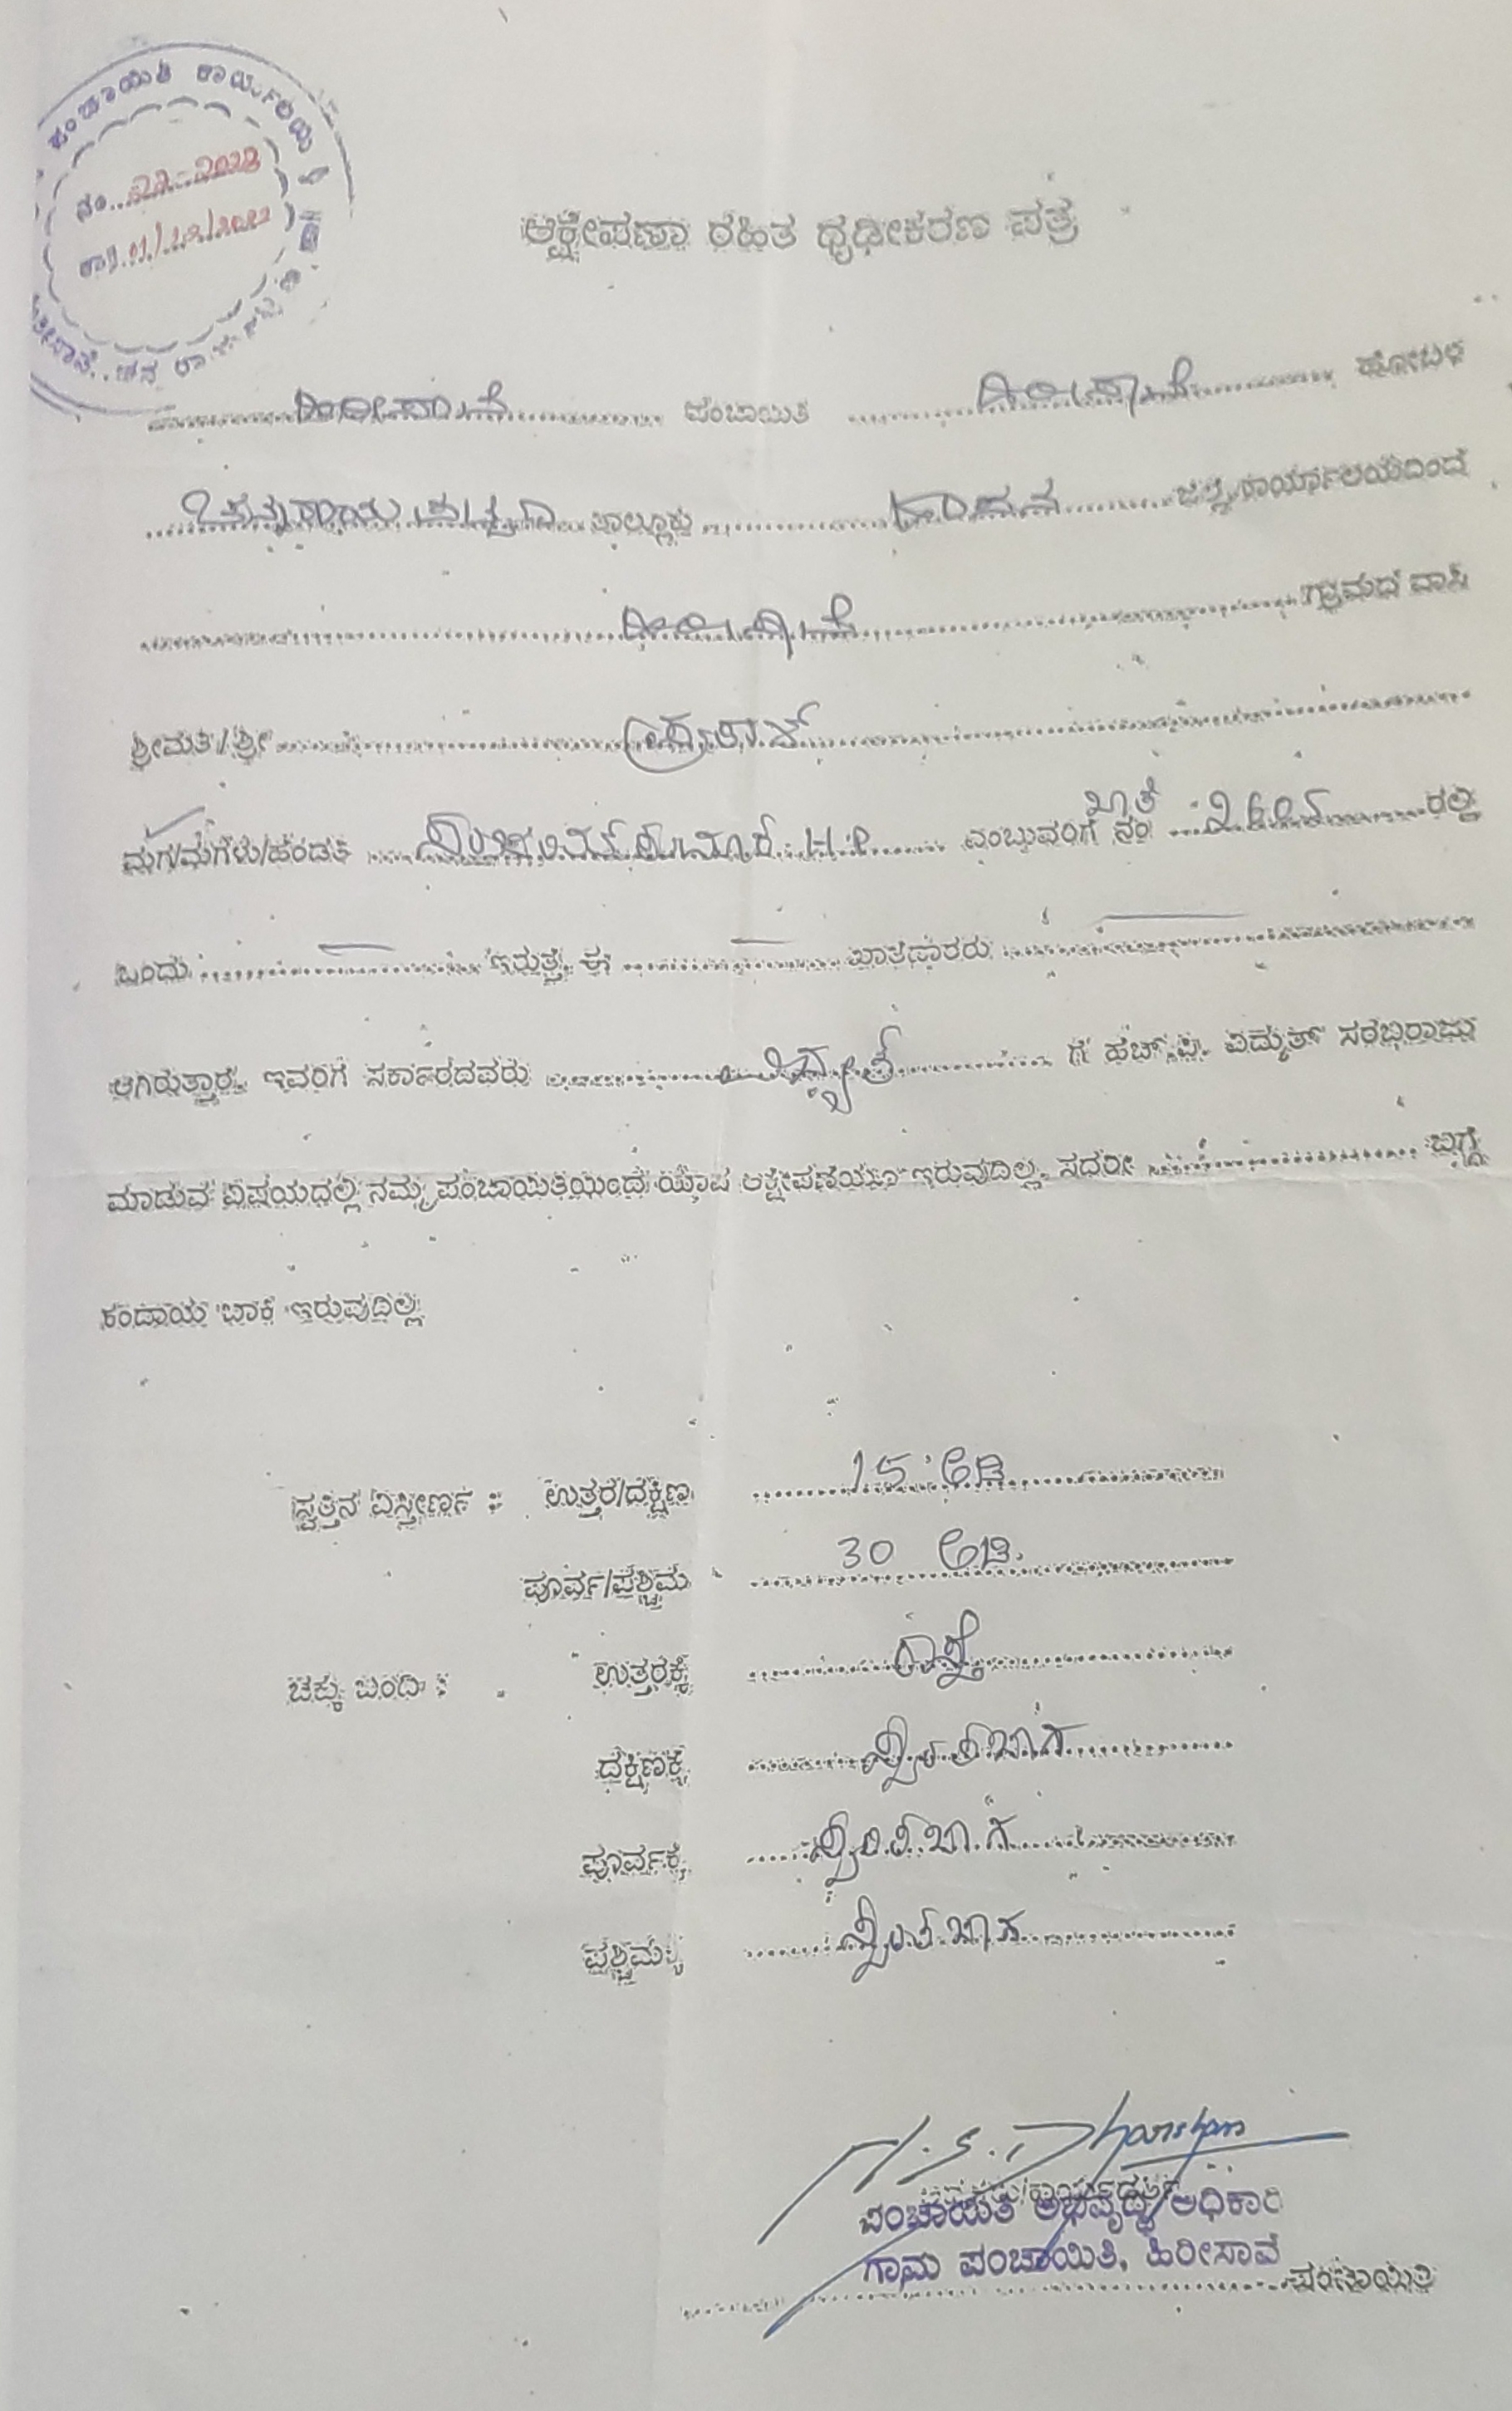 ಪಂಚಾಯಿತಿ ಕಾರ್ಯಾಲಯ
ನಂ. 22-2022
ತಾ|| 01/12/2022
ಆಕ್ಷೇಪಣಾ ರಹಿತ ಧೃಢೀಕರಣ ಪತ್ರ
ಹಿರೀಸಾವೆ ಪಂಚಾಯಿತಿ ಹಿರೀಸಾವೆ ಹೋಬಳಿ
ಚನ್ನರಾಯಪಟ್ಟಣ ತಾಲ್ಲೂಕು ಹಾಸನ ಜಿಲ್ಲಾ ಕಾರ್ಯಾಲಯದಿಂದ
ಹಿರೀಸಾವೆ ಗ್ರಾಮದ ವಾಸಿ
ಶ್ರೀಮತಿ/ಶ್ರೀ
ಮಗ/ಮಗಳು/ಹೆಂಡತಿ H.P ಎಂಬುವರಿಗೆ ಖಾತೆ ನಂ 2605 ರಲ್ಲಿ
ಒಂದು ಇರುತ್ತೆ. ಈ ಖಾತೆದಾರರು
ಆಗಿರುತ್ತಾರೆ. ಇವರಿಗೆ ಸರ್ಕಾರದವರು ವಿದ್ಯುತ್ ಗೆ ಹೆಚ್.ಪಿ. ವಿದ್ಯುತ್ ಸರಬರಾಜು
ಮಾಡುವ ವಿಷಯದಲ್ಲಿ ನಮ್ಮ ಪಂಚಾಯಿತಿಯಿಂದ ಯಾವ ಆಕ್ಷೇಪಣೆಯೂ ಇರುವುದಿಲ್ಲ. ಸದರೀ ಬಗ್ಗೆ
ಕಂದಾಯ ಬಾಕಿ ಇರುವುದಿಲ್ಲ
ಸ್ವತ್ತಿನ ವಿಸ್ತೀರ್ಣ : ಉತ್ತರ/ದಕ್ಷಿಣ 15 ಅಡಿ
ಪೂರ್ವ/ಪಶ್ಚಿಮ 30 ಅಡಿ.
ಚಕ್ಕು ಬಂದಿ : ಉತ್ತರಕ್ಕೆ ರಸ್ತೆ
ದಕ್ಷಿಣಕ್ಕೆ
ಪೂರ್ವಕ್ಕೆ
ಪಶ್ಚಿಮಕ್ಕೆ
H.S. Dharshan
ಪಂಚಾಯಿತಿ ಅಭಿವೃದ್ಧಿ ಅಧಿಕಾರಿ
ಗ್ರಾಮ ಪಂಚಾಯಿತಿ, ಹಿರೀಸಾವೆ
ಪಂಚಾಯಿತಿ